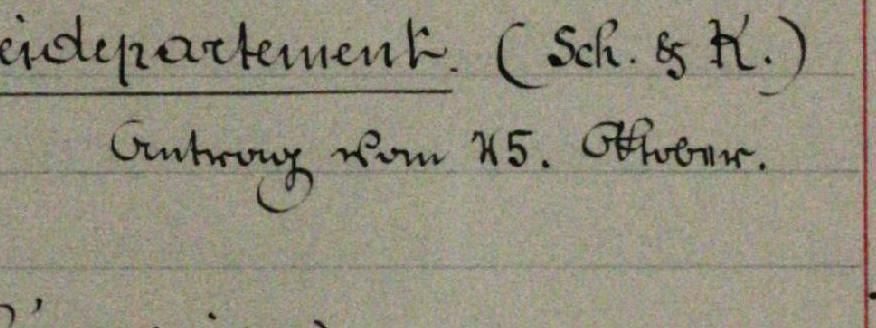 eidepartement. (Sch. & K.)
Antrag vom 25. Oktober.